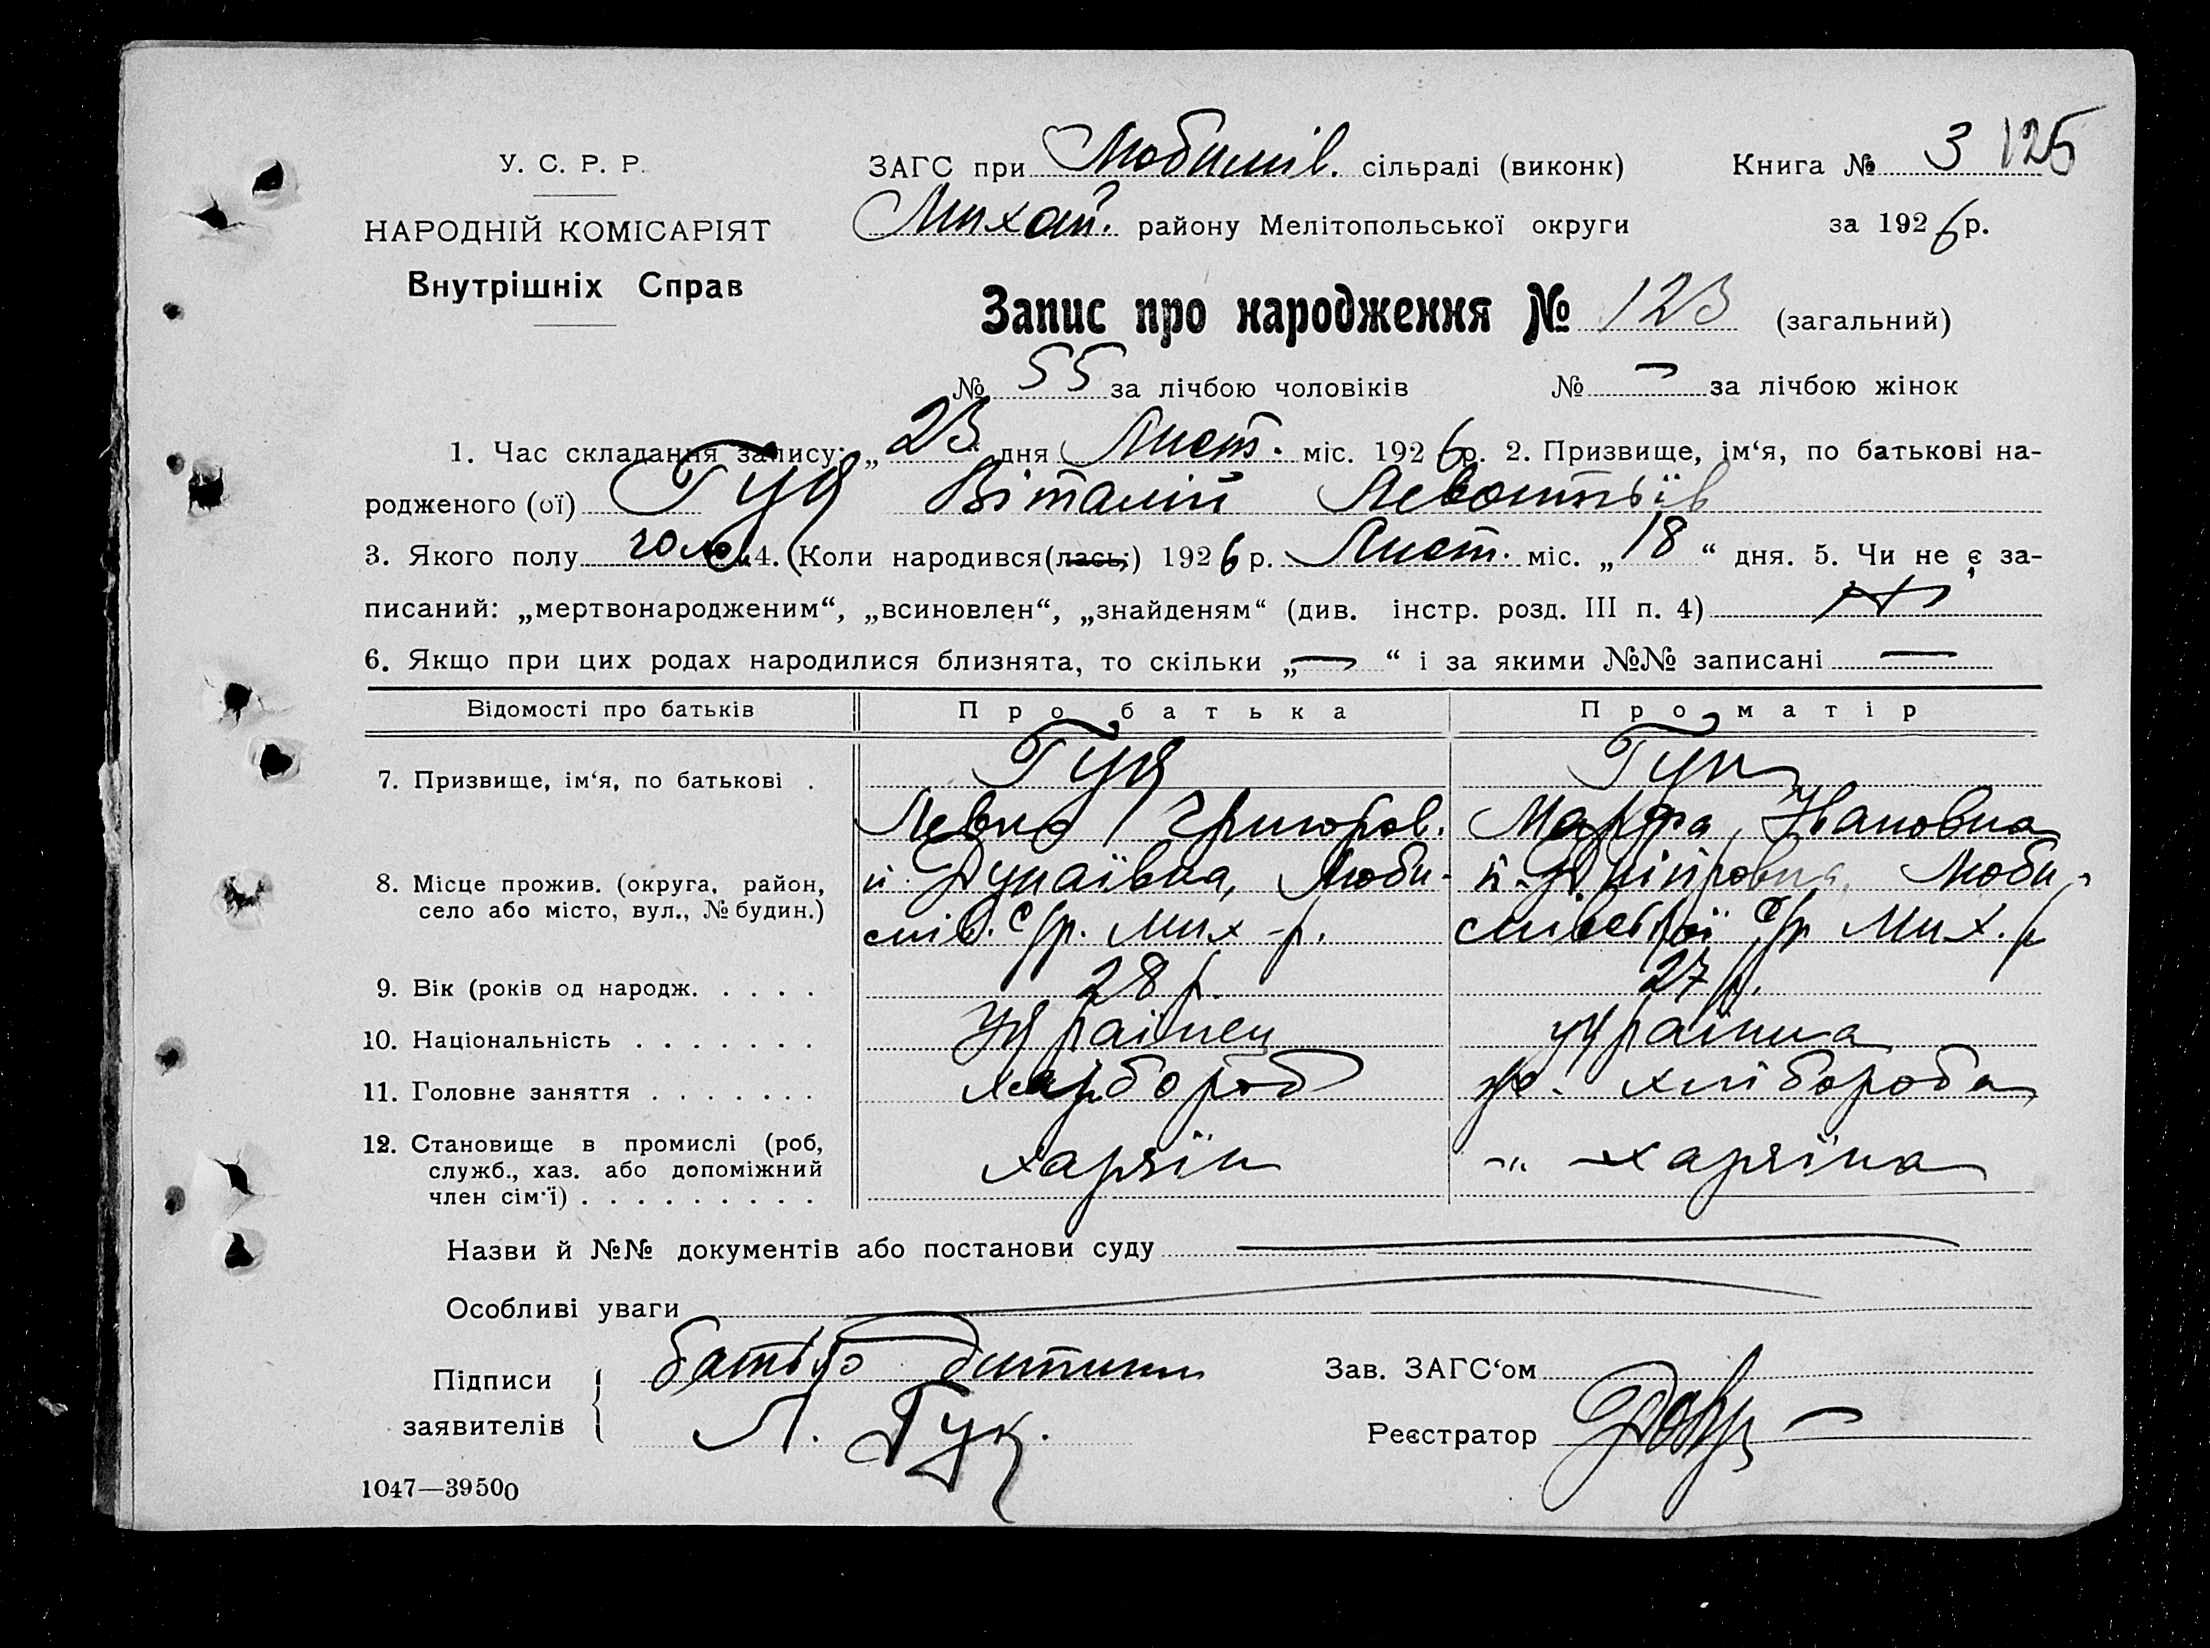 3 125
У. С. Р. Р.
ЗАГС при Любимів. сільраді (виконк)
Книга №
НАРОДНІЙ КОМІСАРІЯТ
Михай. району Мелітопольської округи
за 1926 р.
Внутрішніх Справ
Запис про народження № 123 (загальний)
№ 55 за лічбою чоловіків № — за лічбою жінок
1. Час складання запису: „23" дня Лист. міс. 1926 р. 2. Призвище, ім‘я, по батькові на-
родженого (ої) Гук Віталій Левонтьїв
3. Якого полу чол. 4. Коли народився(лась;) 1926 р. Лист. міс. „18“ дня. 5. Чи не є за-
писаний: „мертвонародженим“, „всиновлен“, „знайденям“ (див. інстр. розд. III п. 4)
6. Якщо при цих родах народилися близнята, то скільки „—“ і за якими №№ записані —
Відомості про батьків Про батька Про матір
7. Призвище, ім‘я, по батькові . Гук Гук
Левко Григоров. Марфа Івановна
8. Місце прожив. (округа, район, Дунаївка, Люби- Люби-
село або місто, вул., № будин.) мів. с/р. Мих-р. мівської с/р Мих. р
9. Вік (років од народж. . . . . 28 р. 27 р.
10. Національність . . . . . . . Українец українка
11. Головне заняття . . . . . . . хліборобка
12. Становище в промислі (роб,
служб., хаз. або допоміжний хазяїн -"- хазяїна
член сім‘ї) . . . . . . . . .
Назви й №№ документів або постанови суду —
Особливі уваги —
Підписи батько дитини Зав. ЗАГС‘ом
заявителів Л. Гук. Реєстратор
1047—39500